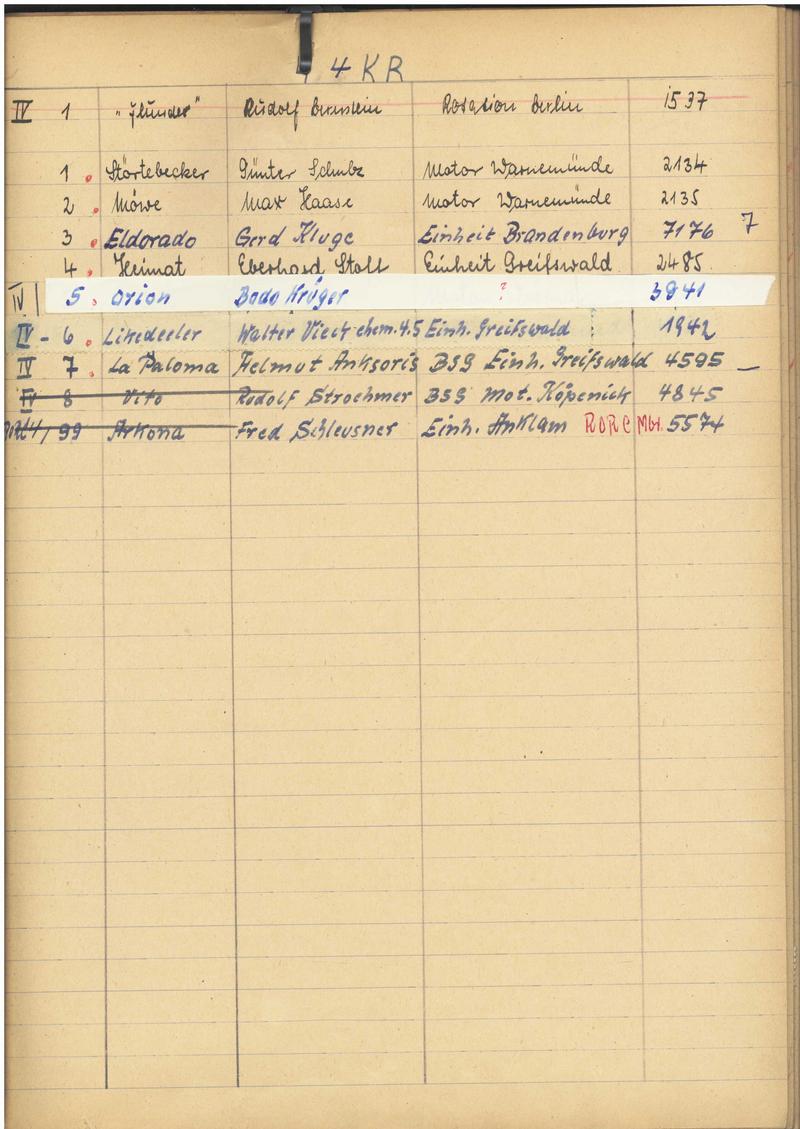 4 KR
IV 1 "Flunder" Rudolf Bernstein Rotation Berlin 1537
1 . Störtebecker Günter Schulz Motor Warnemünde 2134
2 . Möwe Max Haase Motor Warnemünde 2135
3 . Eldorado Gerd Kluge Einheit Brandenburg 7176 7
4 . Heimat Eberhard Stoll Einheit Greifswald 2485
IV 5 . Orion Bodo Krüger ? 3941
IV - 6 . Likedeeler Walter Vieck chem. 4.5 Einh. Greifswald 1942
IV 7 . La Paloma Helmut Anksoris BSG Einh. Greifswald 4595 –
IV 8 Vito Rudolf Stroehmer BSG Mot. Köpenick 4845
99 Arkona Fred Schleusner Einh. Anklam RORC Mbt. 5574